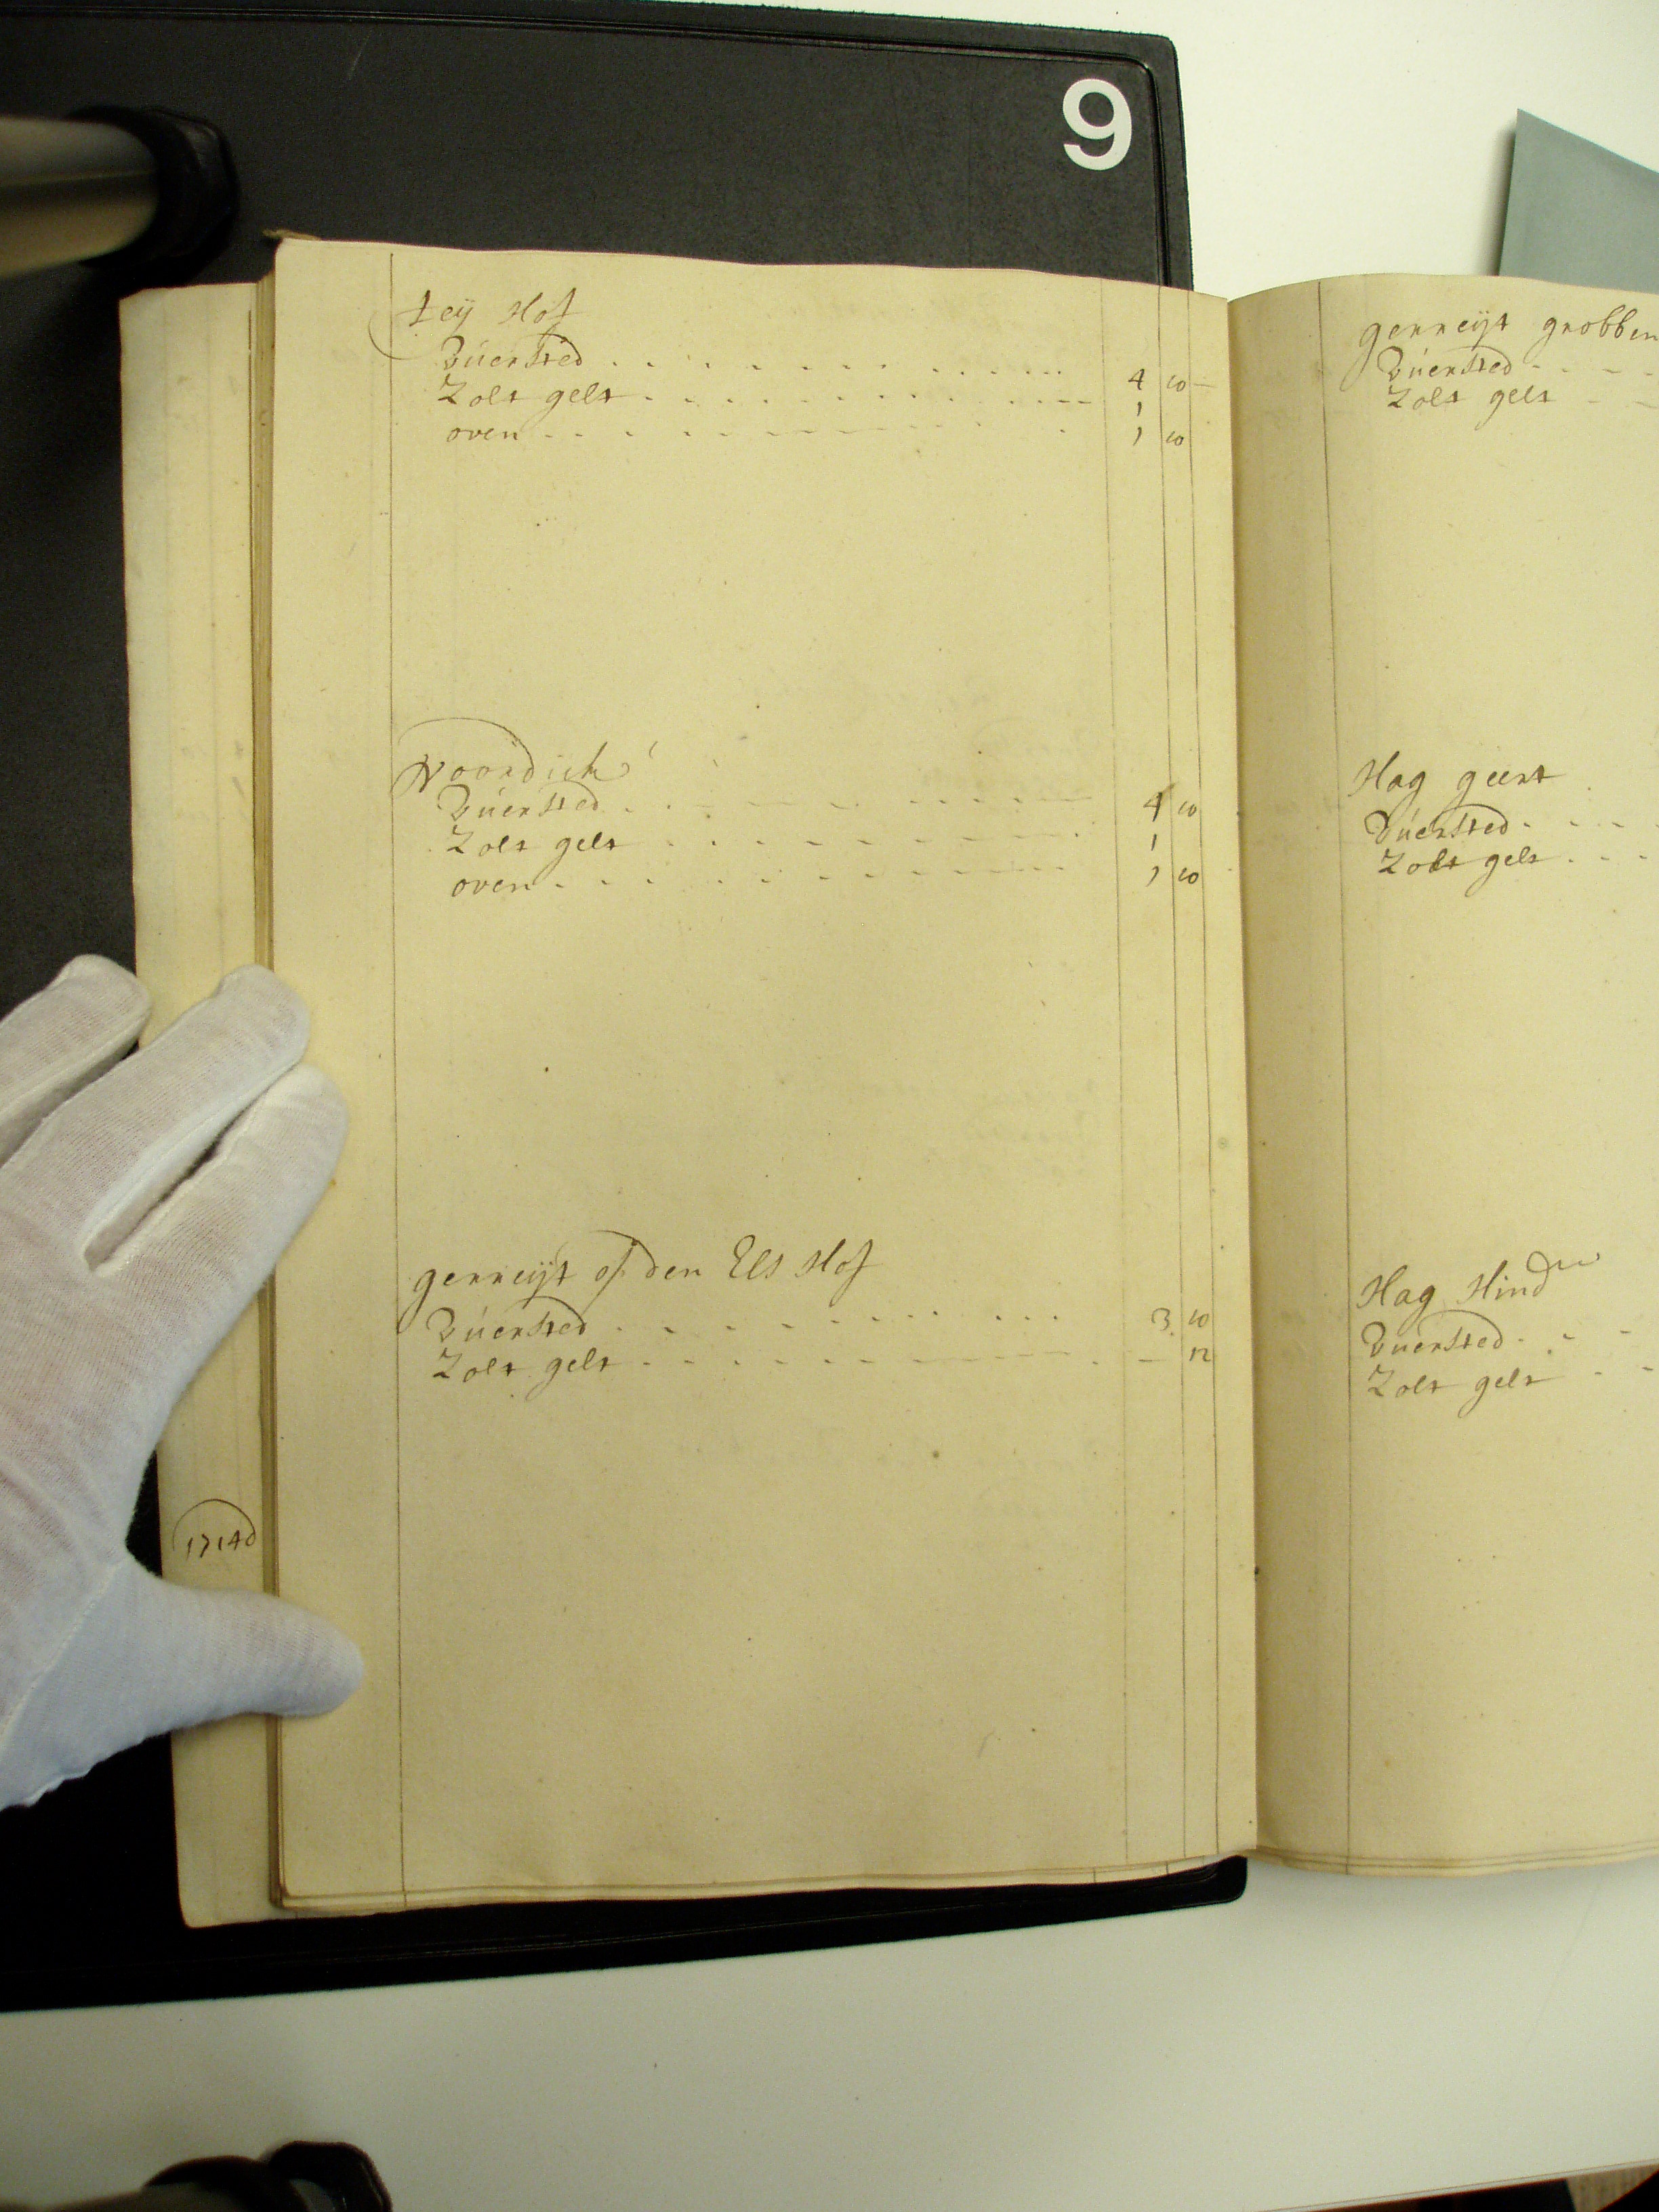 9
teij Hof
Vúersted
4 10
Zolt gelt
1
oven
1 10
Noordich
Vúersted
4 10
Zolt gelt
1
oven
1 10
gerreijt of den Els Hof
Vúersted
3 10
Zolt gelt
12
1714
gerreijt grobben
Vúersted
Zolt gelt
Hag geert
Vúersted
Zolt gelt
Hag Hind
Vúersted
Zolt gelt